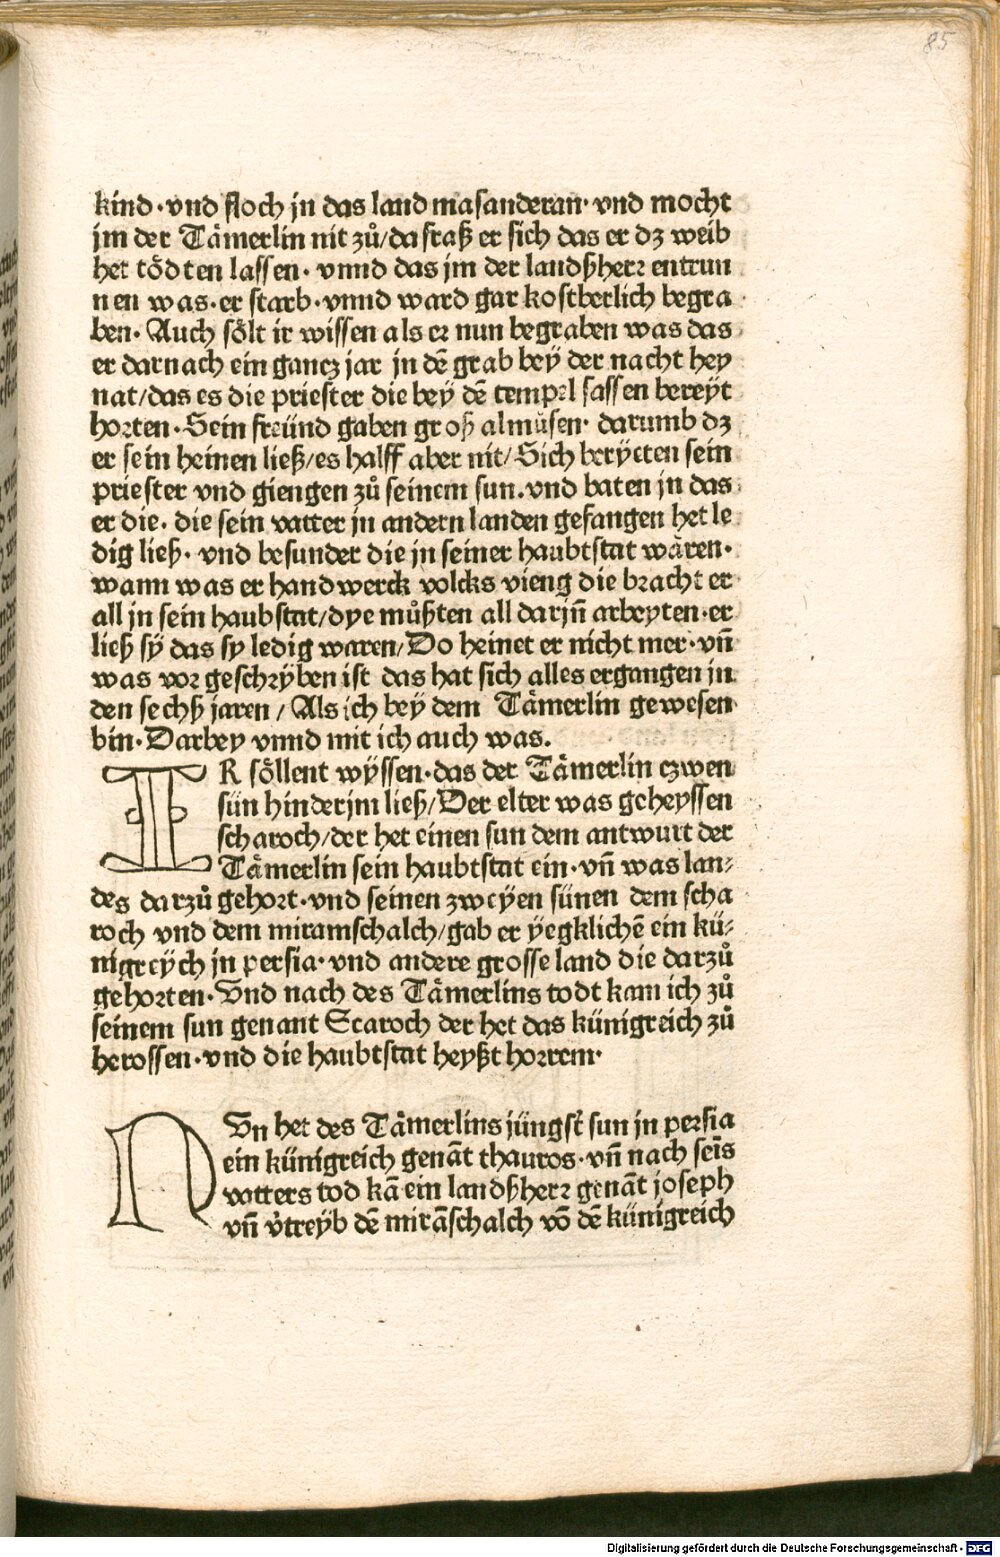 85
kind·vnd floch jn das land masanderan·vnd mocht
jm der Tämerlin nit zů/da fraß er sich das er dz weib
het tödten lassen·vnnd das jm der landßherꝛ entrun
nen was·er starb·vnnd ward gar kostberlich begra
ben·Auch sölt ir wissen als er nun begraben was das
er darnach ein gancz jar jn dē grab beÿ der nacht hey
nat/das es die priester die beÿ dē tempel sassen bereÿt
hoꝛten·Sein freünd gaben groß almüsen·darumb dz
er sein heinen ließ/es halff aber nit/Sich berÿcten sein
priester vnd giengen zů seinem sun.vnd baten jn das
er die·die sein vatter jn andern landen gefangen het le
dig ließ·vnd besunder die jn seiner haubtstat wären·
wann was er handwerck volcks vieng die bꝛacht er
all jn sein haubstat/dye můßten all darjn̄ arbeyten·er
ließ sÿ das sy ledig waren/Do heinet er nicht mer·vn̄
was voꝛ geschꝛÿben ist das hat sich alles ergangen jn
den sechß jaren/Als ich bey dem Tämerlin gewesen
bin·Darbey vnnd mit ich auch was.
IR söllent wÿssen·das der Tämerlin czwen
sün hinder jm ließ/Der elter was geheyssen
scharoch/der het einen sun dem antwurt der
Tämerlin sein haubtstat ein·vn̄ was lan⸗
des darzů gehoꝛt·vnd seinen zweÿen sünen dem scha
roch vnd dem miramschalch/gab er ÿegklichē ein kü⸗
nigreÿch jn persia·vnd andere grosse land die darzů
gehoꝛten·Vnd nach des Tämerlins todt kam ich zů
seinem sun genant Scaroch der het das künigreich zů
herossen·vnd die haubtstat heyßt hoꝛrem·
NVn het des Tämerlins jüngst sun jn persia
ein künigreich genāt thauros·vn̄ nach seīs
vatters tod kā ein landßherꝛ genāt joseph
vn̄ v̓treÿb dē mirāschalch vō dē künigreich
Digitalisierung gefördert durch die Deutsche Forschungsgemeinschaft - DFG